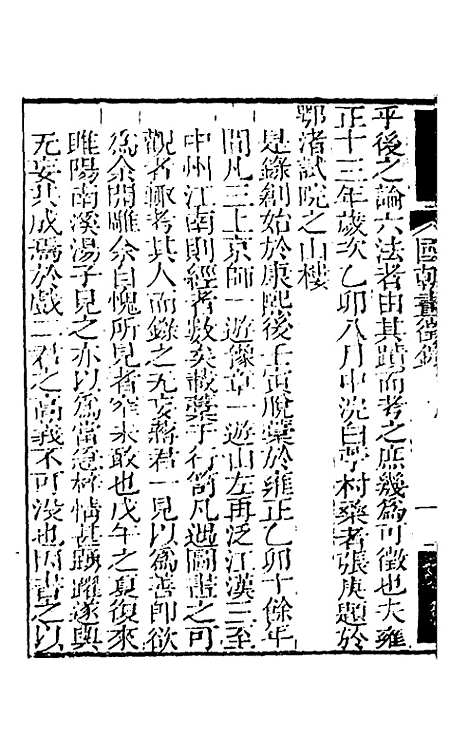 國朝畫徵錄
乎後之論六法者由其蹟而考之庶幾爲可徵也夫雍
正十三年歲次乙卯八月中浣白苧村桑者張庚題於
鄂渚試院之山樓
是錄創始於康熙後壬寅脫藁於雍正乙卯十餘年
間凡三上京師一遊豫章一遊山左再泛江漢三至
中州江南則經者數矣載藁于行笥凡遇圖畫之可
觀者輒考其人而錄之无妄蔣君一見以爲善即欲
爲余開雕余自愧所見者窄未敢也戊午之夏復來
睢陽南溪湯子見之亦以爲當急梓情甚踴躍遂與
无妄共成焉於戲二君之高義不可没也因書之以